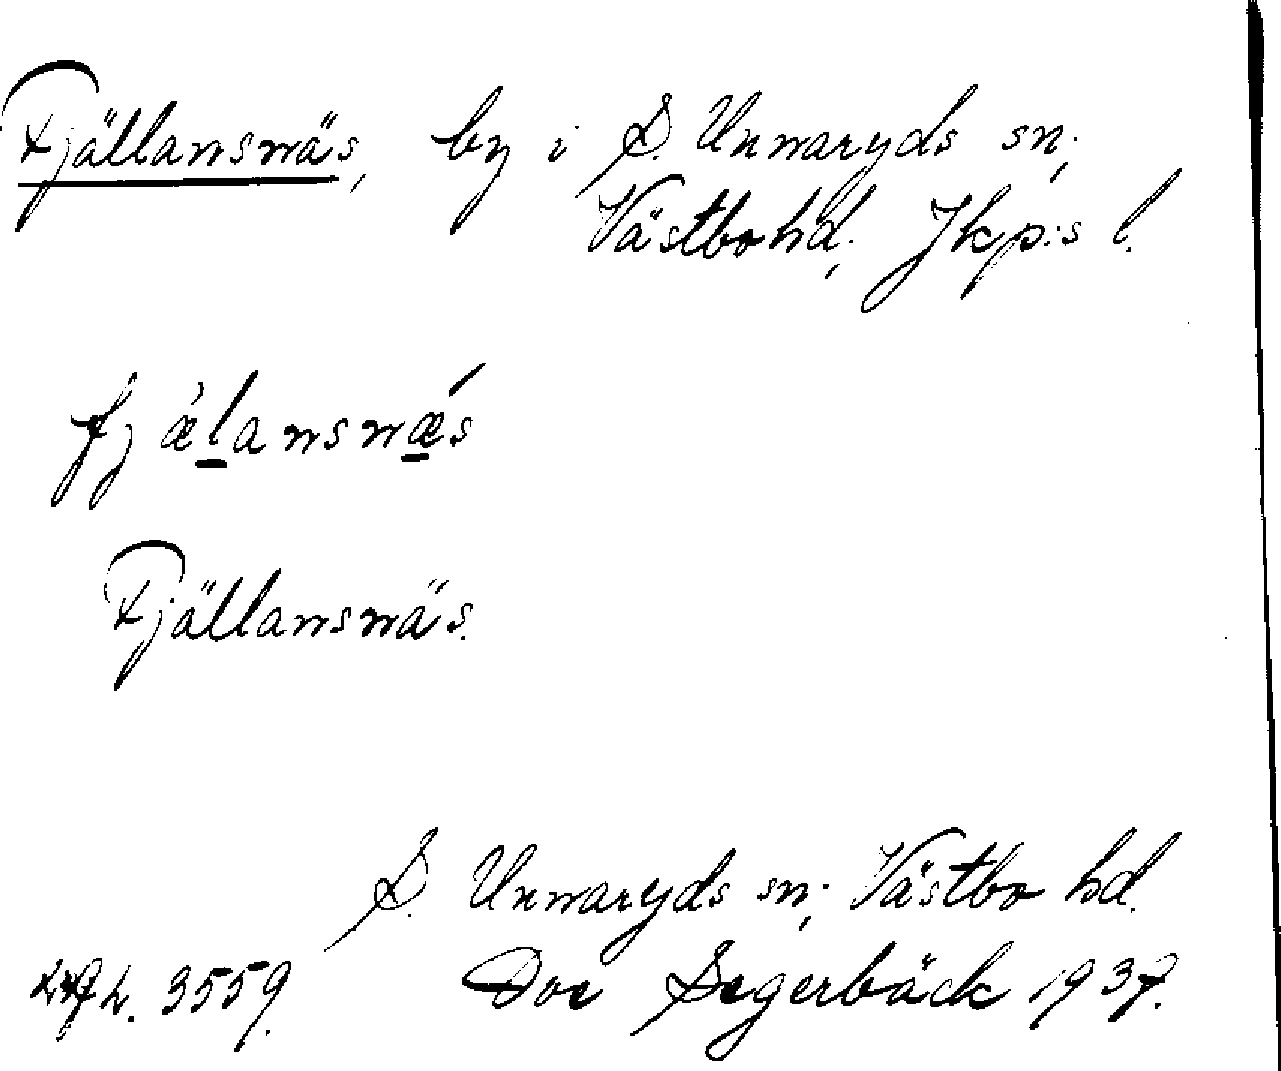 Fjällansnäs, by i S. Unnaryds sn;
Västbo hd; Jkp:s l.
fjælansnæ´s
Fjällansnäs.
S. Unnaryds sn; Västbo hd.
3559. Segerbäck 1937.